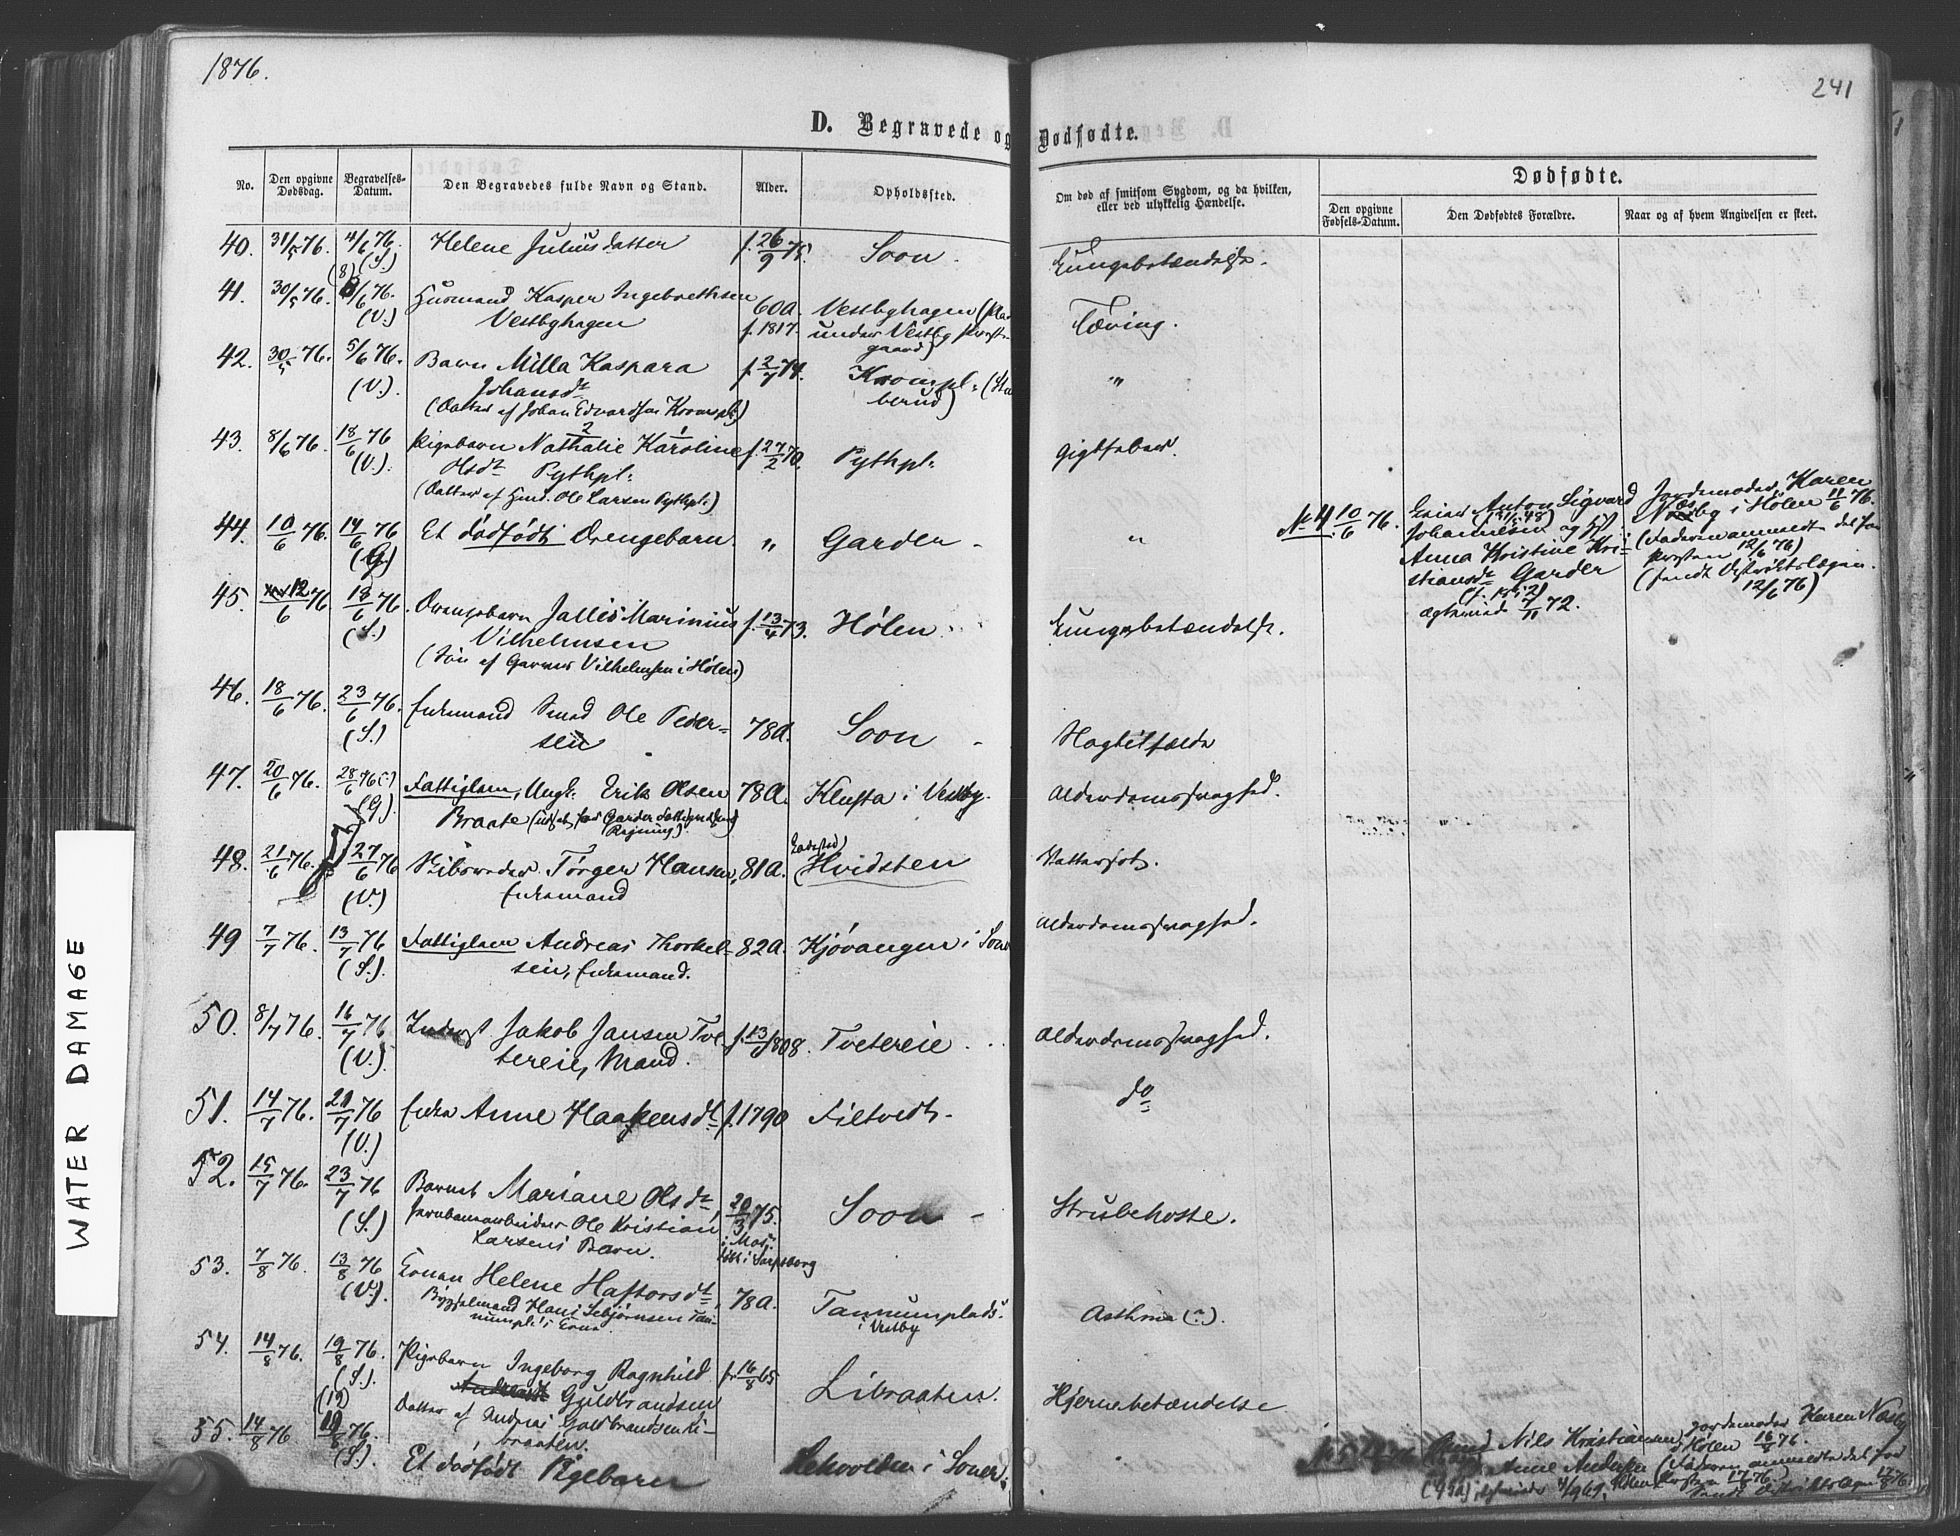 1876.
241
D. Begravede og Dødfødte.
No.
Den opgivne Dødsdag.
Begravelses-Datum.
Den Begravedes fulde Navn og Stand.
Alder.
Opholdssted.
Om død af smitsom Sygdom, og da hvilken, eller ved ulykkelig Hændelse.
Dødfødte.
Den opgivne Fødsels-Datum.
Den Dødfødtes Forældre.
Naar og af hvem Angivelsen er skeet.
40. 31/5 76. 11/6 76. (S.) Helene Juliusdatter f. 26/9 75. Soon. Lungebetændelse.
41. 30/5 76. (8) /6 76. (V.) Husmand Kasper Ingebrethsen 60 a. Vestbyhagen (Pla
Vestbyhagen f. 1817. under Vestby Præste-
gaard) Tæring.
42. 30/5 76. 5/6 76. (V.) Barn Milla Kaspara f. 2/7 74. Krompl: (Sta
Johansdr berud) "
(Datter af Johan Edvardsen Krompl:)
43. 8/6 76. 18/6 76 (V.) Pigebarn Nathalie Karoline f. 27/2 70. Pythpl: Gigtfeber.
Olsdr Pythpl:
(Datter af Husm. Ole Larsen Pythpl:)
44. 10/6 76. 14/6 76 (G.) Et dødfødt Drengebarn. " Garder - "
No 4 10/6 76. Gaardr Anton Sigvard
Johannesen og Hst
Anna Kristine Kri-
stiansdr Garder
ægteviede 7/11 72.
Jordemoder Karen
Næsby i Hølen 11/6 76.
(Faderen anmeldte det for
Præsten 12/6 76)
(sendt Distriktslægen
12/6 76)
45. 12/6 76 18/6 76. (S.) Drengebarn Jallis Marinius f. 13/4 73. Hølen. Lungebetændelse.
Vilhelmsen
(Søn af Garver Vilhelmsen i Hølen)
46. 18/6 76. 23/6 76. (S.) Enkemand Smed Ole Peder- 78 a. Soon - Hogtilfælde
sen
47. 20/6 76. 28/6 76 (G). Fattiglem, Ungk: Erik Olsen 78 a. Klufta i Vestby. Alderdomssvaghed.
Braate (udsat for Garder Fattigvæsens
Regning)
48. 21/6 76. 27/6 76 (V.) Skibsreder Tørger Hansen, 81 a. Ladested) Hvidsten Vattersot.
Enkemand
49 7/7 76. 13/7 76 (S.) Fattiglem Andreas Thorkel- 82 a. Kjøvangen i Soner Alderdomssvaghed.
sen, Enkemand.
50. 8/7 76. 16/7 76 (V.) Inderst Jakob Jansen Tve f. 13/ 1808. Tvetereie Alderdomssvaghed.
tereie, Mand.
51. 14/7 76. 21/7 76 (V.) Enke Anne Haakensdr f. 1790 Filtvedt. do
52. 15/7 76. 23/7 76 (S.) Barnet Mariane Olsdr, 20/3 75. Soon - Strubehoste.
Jernbanearbeider Ole Kristian
Larsens Barn. født i Sarpsborg
53. 7/8 76. 13/8 76 (V.) Konen Helene Haftorsdr, 78 a. Tannumplads: i Vestby Asthma (?).
Bygselmand Hans Sebjørnsen Tan-
numpl:s Kone.
54. 14/8 76. 19/8 76. (S.) Pigebarn Ingeborg Ragnhild f. 16/8 65 Libraaten. Hjernebetændelse
Guldbrandsen
Datter af Andreas Guldbrandsen Li-
braaten.
55. 14/8 76 (19) /8 76. (S.) Et dødfødt Pigebarn Lekvolden i Soner.
Nils Kristiansen
Anne Andersdr
Jordemoder Karen Næsby
i Hølen 16/8 76.
(Faderen anmeldte det for
Præsten 17/8 76)
sendt Distriktslægen 17/8 76.
WATER DAMAGE